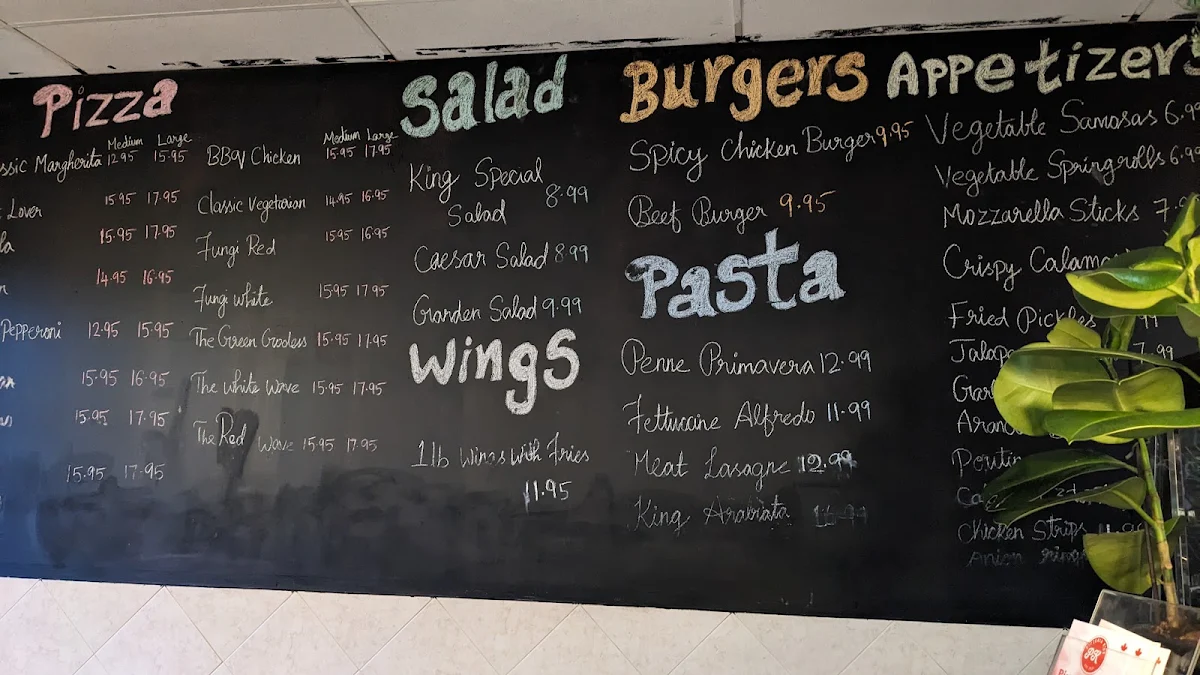 Pizza
Medium Large
ssic Margherita 12.95 15.95
Lover 15.95 17.95
la 15.95 17.95
14.95 16.95
Pepperoni 12.95 15.95
an 15.95 16.95
15.95 17.95
15.95 17.95
Medium Large
BBQ Chicken 15.95 17.95
Classic Vegetarian 14.95 16.95
Fungi Red 15.95 16.95
Fungi white 15.95 17.95
The Green Goolers 15.95 17.95
The white Wave 15.95 17.95
The Red Wave 15.95 17.95
Salad
King Special
Salad 8.99
Caesar Salad 8.99
Garden Salad 9.99
Wings
1lb wings with Fries
11.95
Burgers
Spicy Chicken Burger 9.95
Beef Burger 9.95
Pasta
Penne Primavera 12.99
Fettuccine Alfredo 11.99
Meat Lasagne 12.99
King Arabiata
Appetizers
Vegetable Samosas 6.99
Vegetable Springrolls 6.99
Mozzarella Sticks 7.
Crispy Calama
Fried Pickles
Jalap 7.99
Gar
Aran
Poutin
Chicken Strips
Anion rings